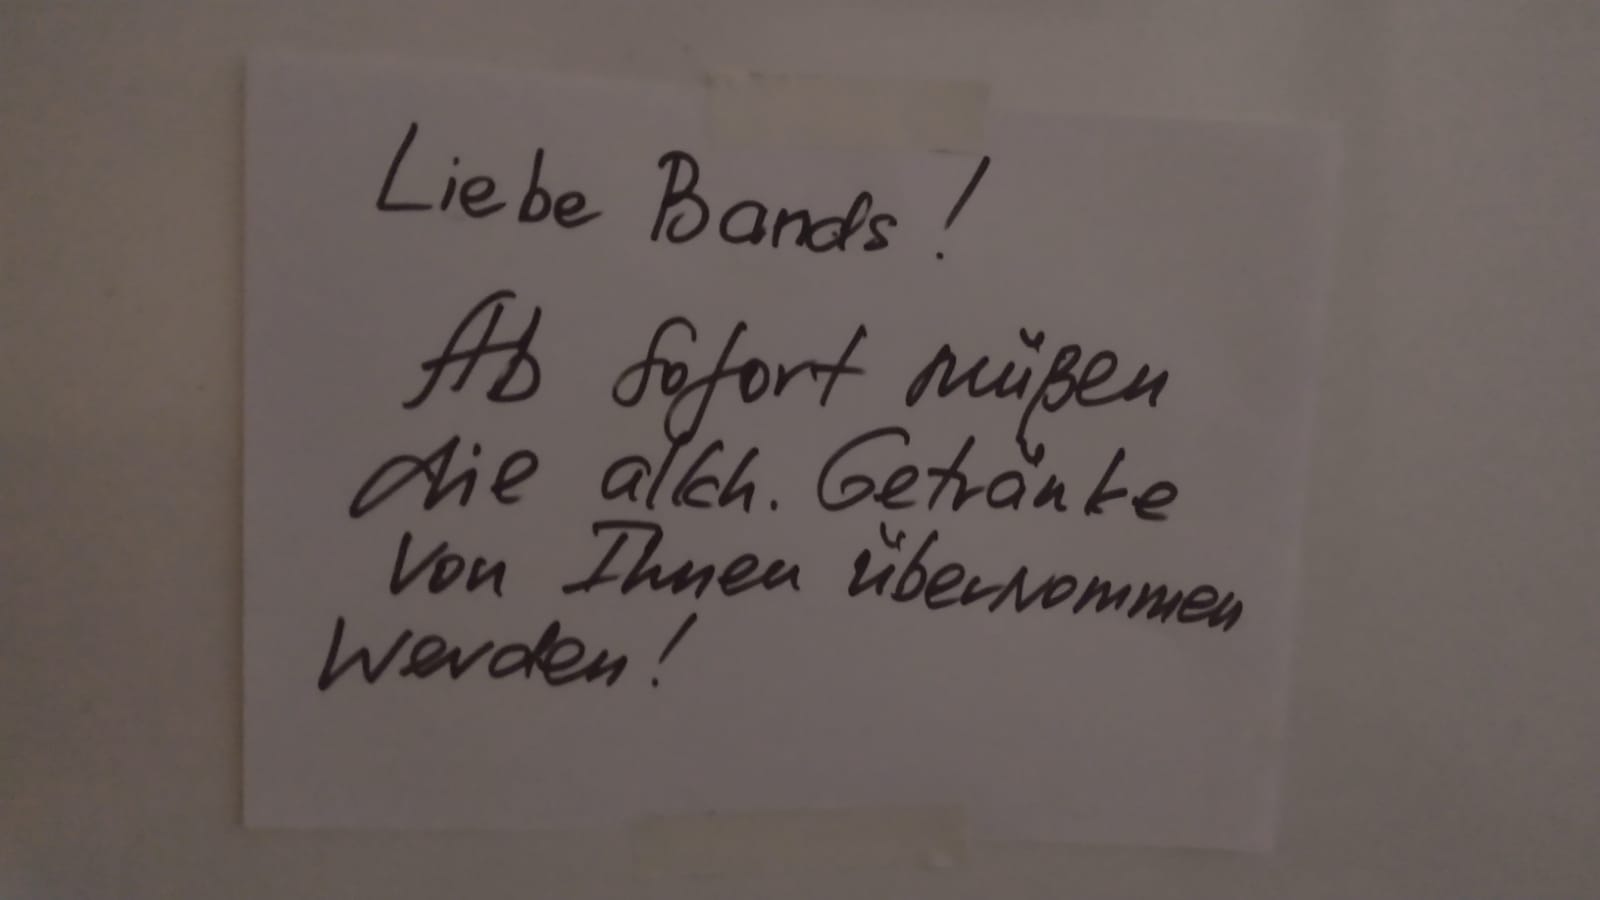 Liebe Bands!
Ab sofort müßen
die alkh. Getränke
von Ihnen übernommen
werden!